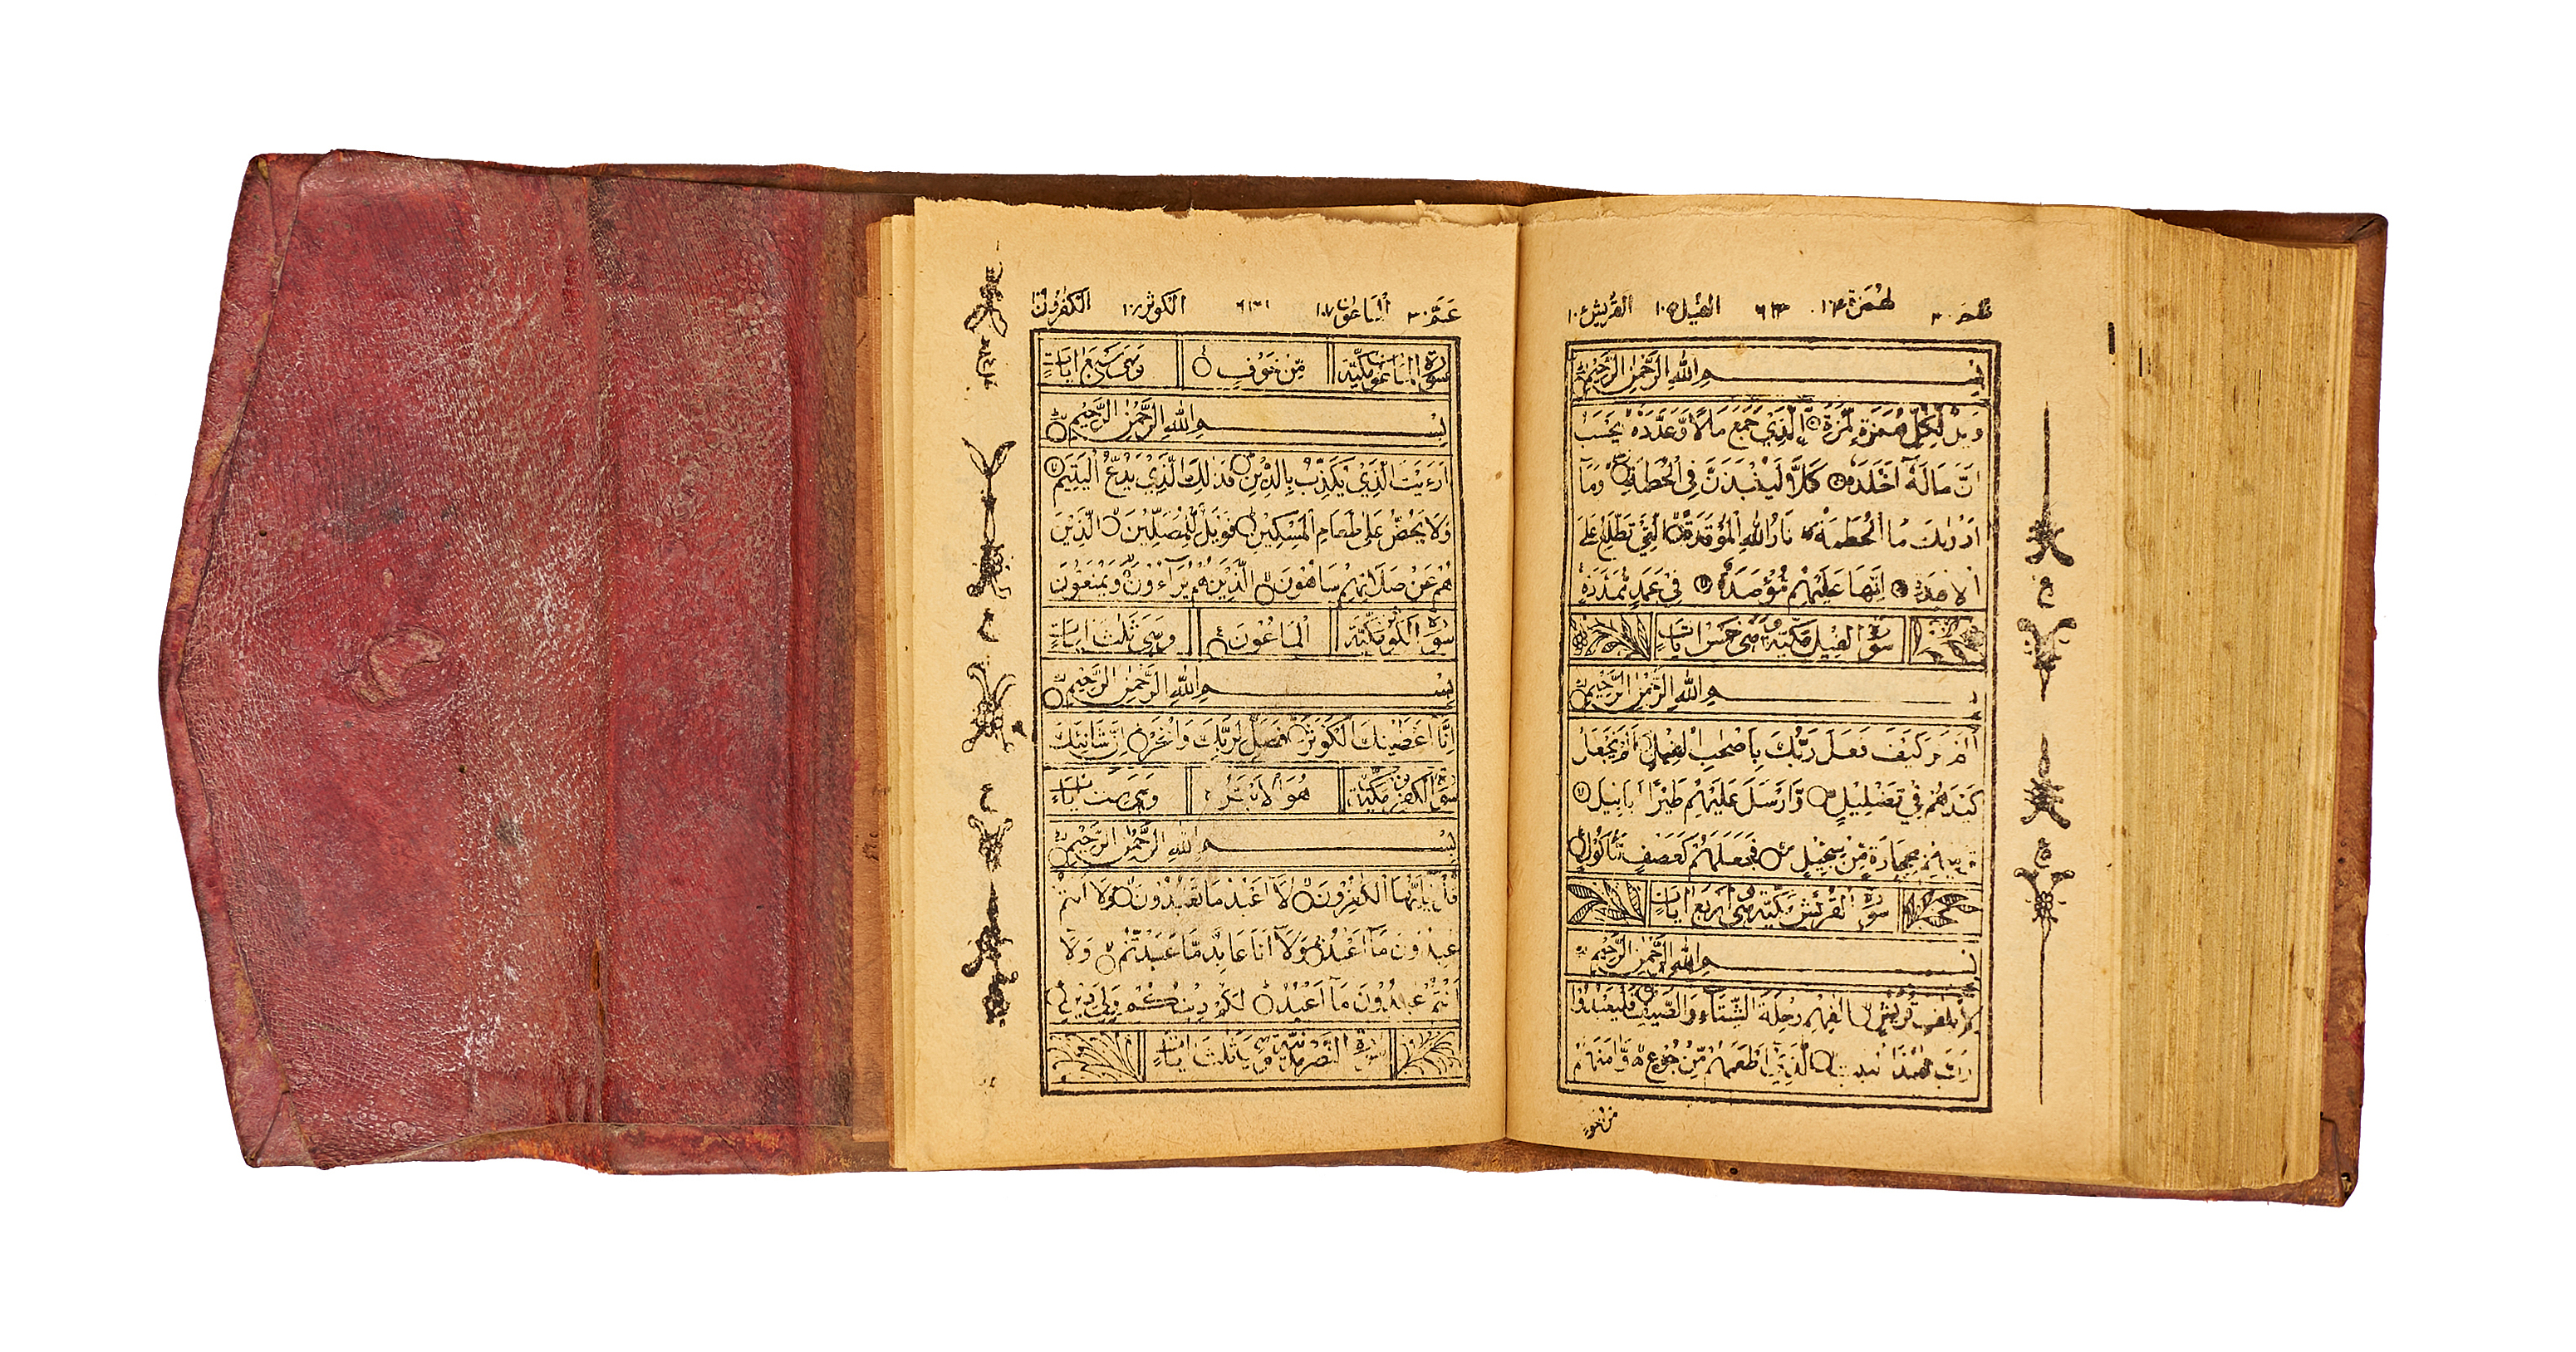 عم ٣٠ لهمزة ١٠٤ ٦٣٠ الفيل ١٠٥ القريش ١٠٦
بِسْمِ اللهِ الرَّحْمٰنِ الرَّحِيْمِ
وَيْلٌ لِّكُلِّ هُمَزَةٍ لُّمَزَةٍ الَّذِيْ جَمَعَ مَالًا وَّعَدَّدَهٗ يَحْسَبُ
اَنَّ مَالَهٗٓ اَخْلَدَهٗ كَلَّا لَيُنْۢبَذَنَّ فِي الْحُطَمَةِ وَمَآ
اَدْرٰىكَ مَا الْحُطَمَةُ نَارُ اللهِ الْمُوْقَدَةُ الَّتِيْ تَطَّلِعُ عَلَى
الْاَفْـِٕدَةِ اِنَّهَا عَلَيْهِمْ مُّؤْصَدَةٌ فِيْ عَمَدٍ مُّمَدَّدَةٍ
سُوْرَةُ الْفِيْلِ مَكِّيَّةٌ وَّهِيَ خَمْسُ اٰيَاتٍ
بِسْمِ اللهِ الرَّحْمٰنِ الرَّحِيْمِ
اَلَمْ تَرَ كَيْفَ فَعَلَ رَبُّكَ بِاَصْحٰبِ الْفِيْلِ اَلَمْ يَجْعَلْ
كَيْدَهُمْ فِيْ تَضْلِيْلٍ وَّاَرْسَلَ عَلَيْهِمْ طَيْرًا اَبَابِيْلَ
تَرْمِيْهِمْ بِحِجَارَةٍ مِّنْ سِجِّيْلٍ فَجَعَلَهُمْ كَعَصْفٍ مَّأْكُوْلٍ
سُوْرَةُ الْقُرَيْشِ مَكِّيَّةٌ وَّهِيَ اَرْبَعُ اٰيَاتٍ
بِسْمِ اللهِ الرَّحْمٰنِ الرَّحِيْمِ
لِاِيْلٰفِ قُرَيْشٍ اٖلٰفِهِمْ رِحْلَةَ الشِّتَآءِ وَالصَّيْفِ فَلْيَعْبُدُوْا
رَبَّ هٰذَا الْبَيْتِ الَّذِيْٓ اَطْعَمَهُمْ مِّنْ جُوْعٍ وَّاٰمَنَهُمْ
من خوف
ع
ع
عم ٣٠ الماعون ١٠٧ ٦٣١ الكوثر ١٠٨ الكفرون
سُوْرَةُ الْمَاعُوْنِ مَكِّيَّةٌ مِّنْ خَوْفٍ وَهِيَ سَبْعُ اٰيَاتٍ
بِسْمِ اللهِ الرَّحْمٰنِ الرَّحِيْمِ
اَرَءَيْتَ الَّذِيْ يُكَذِّبُ بِالدِّيْنِ فَذٰلِكَ الَّذِيْ يَدُعُّ الْيَتِيْمَ
وَلَا يَحُضُّ عَلٰى طَعَامِ الْمِسْكِيْنِ فَوَيْلٌ لِّلْمُصَلِّيْنَ الَّذِيْنَ
هُمْ عَنْ صَلَاتِهِمْ سَاهُوْنَ الَّذِيْنَ هُمْ يُرَآءُوْنَ وَيَمْنَعُوْنَ
سُوْرَةُ الْكَوْثَرِ مَكِّيَّةٌ الْمَاعُوْنَ وَهِيَ ثَلٰثُ اٰيَاتٍ
بِسْمِ اللهِ الرَّحْمٰنِ الرَّحِيْمِ
اِنَّآ اَعْطَيْنٰكَ الْكَوْثَرَ فَصَلِّ لِرَبِّكَ وَانْحَرْ اِنَّ شَانِئَكَ
سُوْرَةُ الْكٰفِرُوْنَ مَكِّيَّةٌ هُوَ الْاَبْتَرُ وَهِيَ سِتُّ اٰيَاتٍ
بِسْمِ اللهِ الرَّحْمٰنِ الرَّحِيْمِ
قُلْ يٰٓاَيُّهَا الْكٰفِرُوْنَ لَآ اَعْبُدُ مَا تَعْبُدُوْنَ وَلَآ اَنْتُمْ
عٰبِدُوْنَ مَآ اَعْبُدُ وَلَآ اَنَا عَابِدٌ مَّا عَبَدْتُّمْ وَلَآ
اَنْتُمْ عٰبِدُوْنَ مَآ اَعْبُدُ لَكُمْ دِيْنُكُمْ وَلِيَ دِيْنِ
سُوْرَةُ النَّصْرِ مَدَنِيَّةٌ وَّهِيَ ثَلٰثُ اٰيَاتٍ
ع
ع